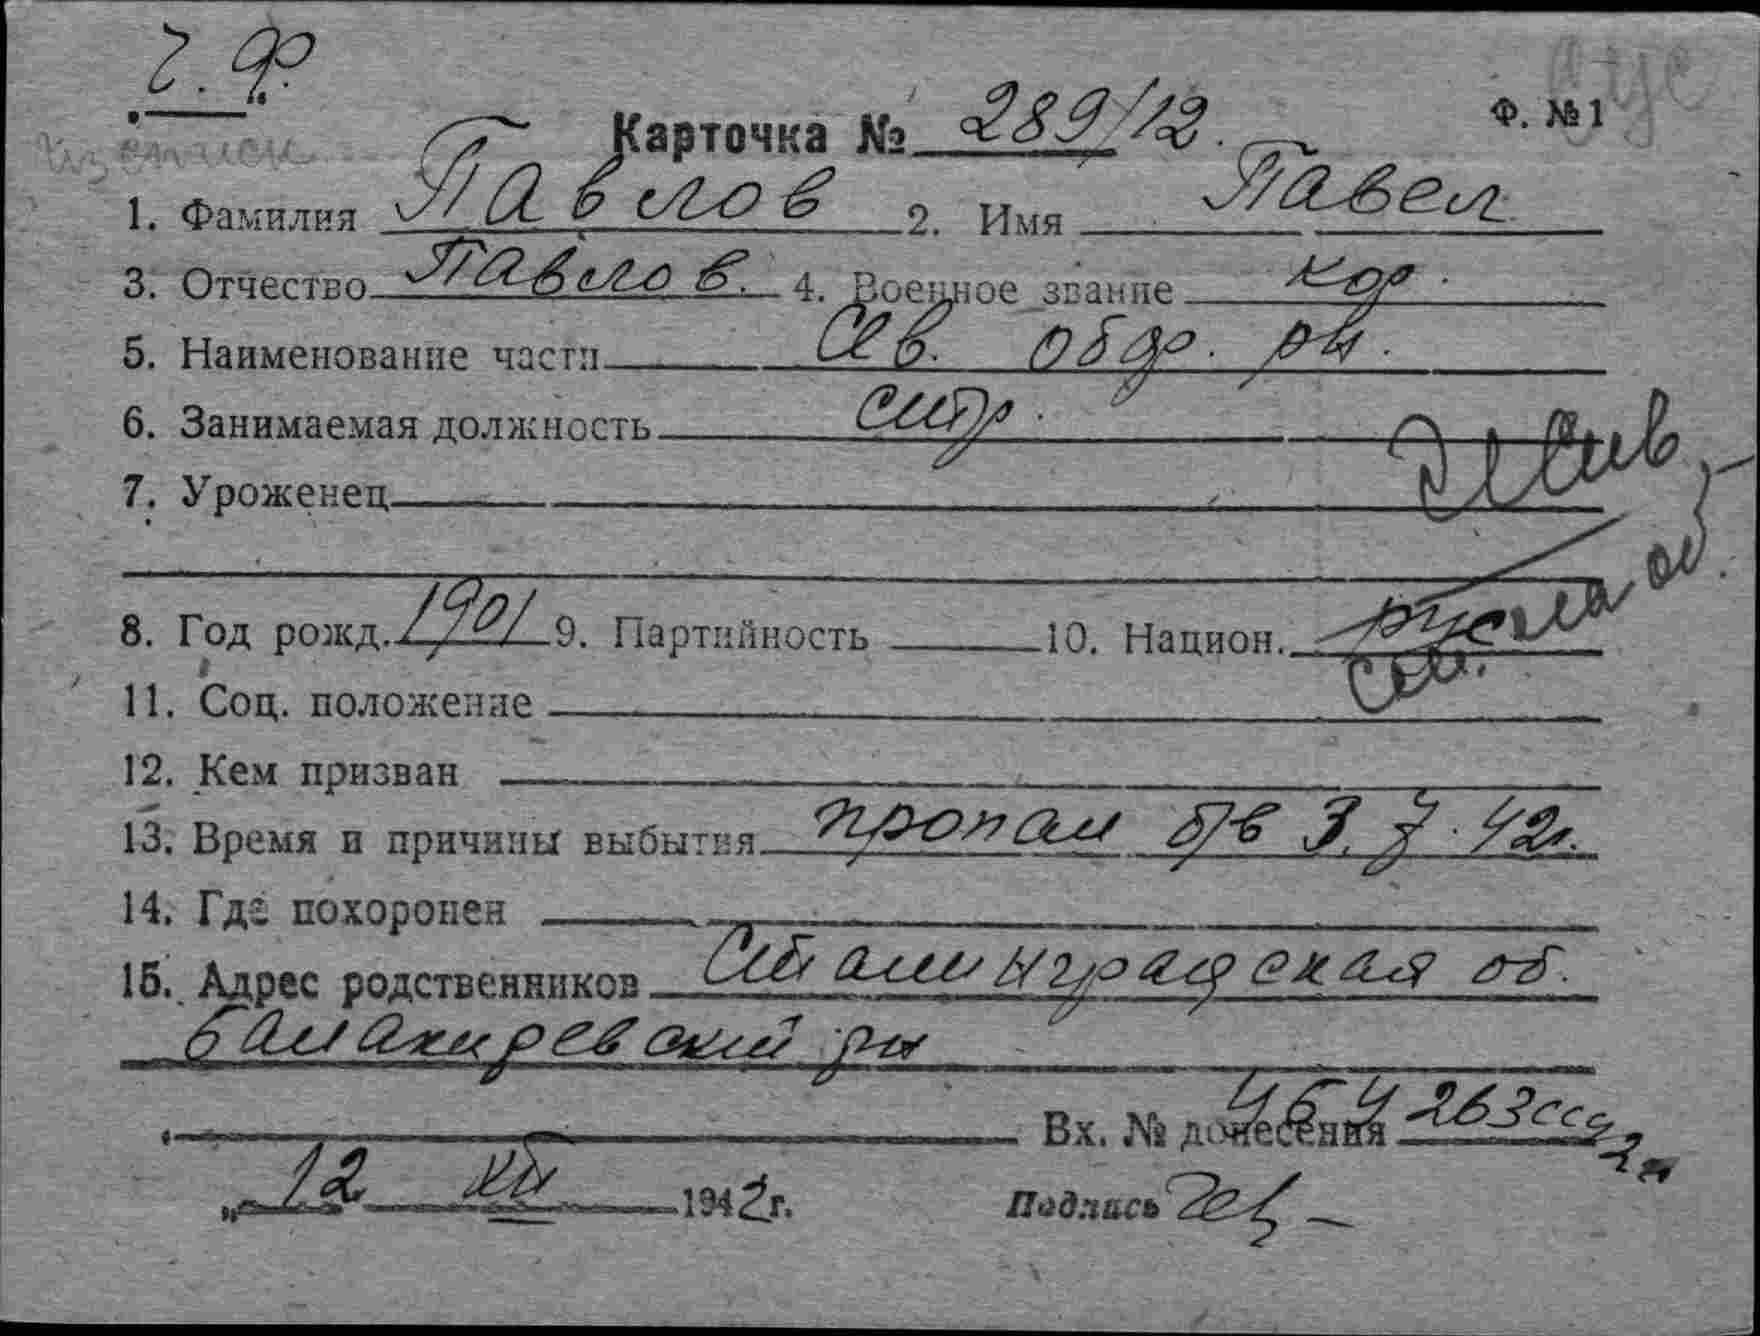 Ч. Ф.
рус
Карточка № 289/12.
Ф. № 1
из списк
1. Фамилия Павлов 2. Имя Павел
3. Отчество Павлов. 4. Военное звание кр.
5. Наименование части Сев. обор. рн.
6. Занимаемая должность стр.
7. Уроженец
8. Год рожд. 1901 9. Партийность 10. Национ. рус
11. Соц. положение
12. Кем призван
13. Время и причины выбытия пропал б/в 3. 7. 42г.
14. Где похоронен
15. Адрес родственников Сталинградская об.
Балакиревский рн
Вх. № донесения 4
12 XII 1942г. Подпись